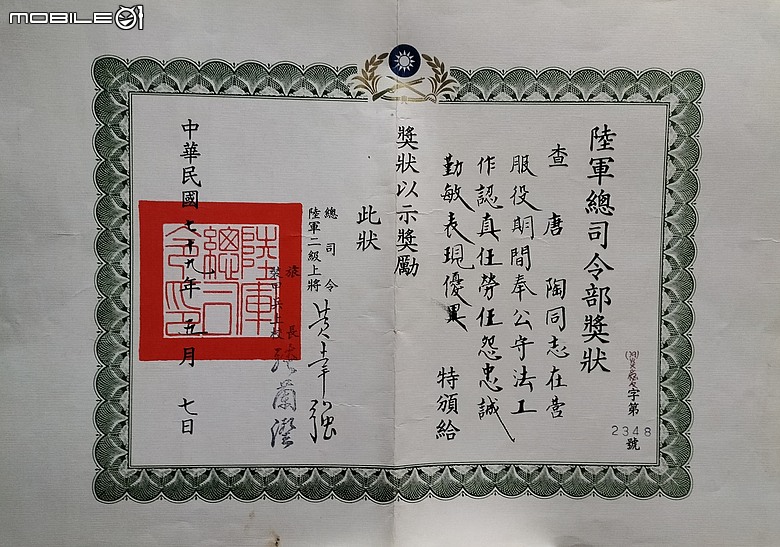 MOBILE01
陸軍總司令部獎狀
字第
2348
號
查唐陶同志在營
服役期間奉公守法工
作認真任勞任怨忠誠
勤敏表現優異特頒給
獎狀以示獎勵
此狀
總司令
陸軍二級上將 黃幸強
旅長
裝甲兵上校
陸軍
總司
令印
中華民國七十九年五月七日